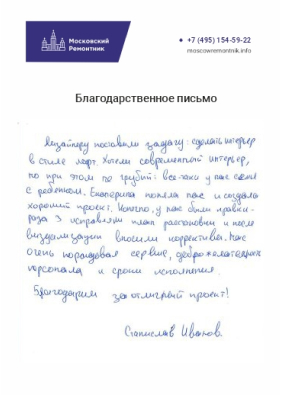 Московский
Ремонтник
+7 (495) 154-59-22
moscowremontnik.info
Благодарственное письмо
Дизайнеру поставили задачу: сделать интерьер
в стиле лофт. Хотели современный интерьер,
но при этом не грубый: все-таки у нас семья
с ребенком. Екатерина поняла нас и создала
хороший проект. Конечно, у нас были правки-
раза 3 исправляли план расстановки и после
визуализации вносили коррективы. Нас
очень порадовал сервис, доброжелательность
персонала и сроки исполнения.
Благодарим за отличный проект!
Станислав Иванов.